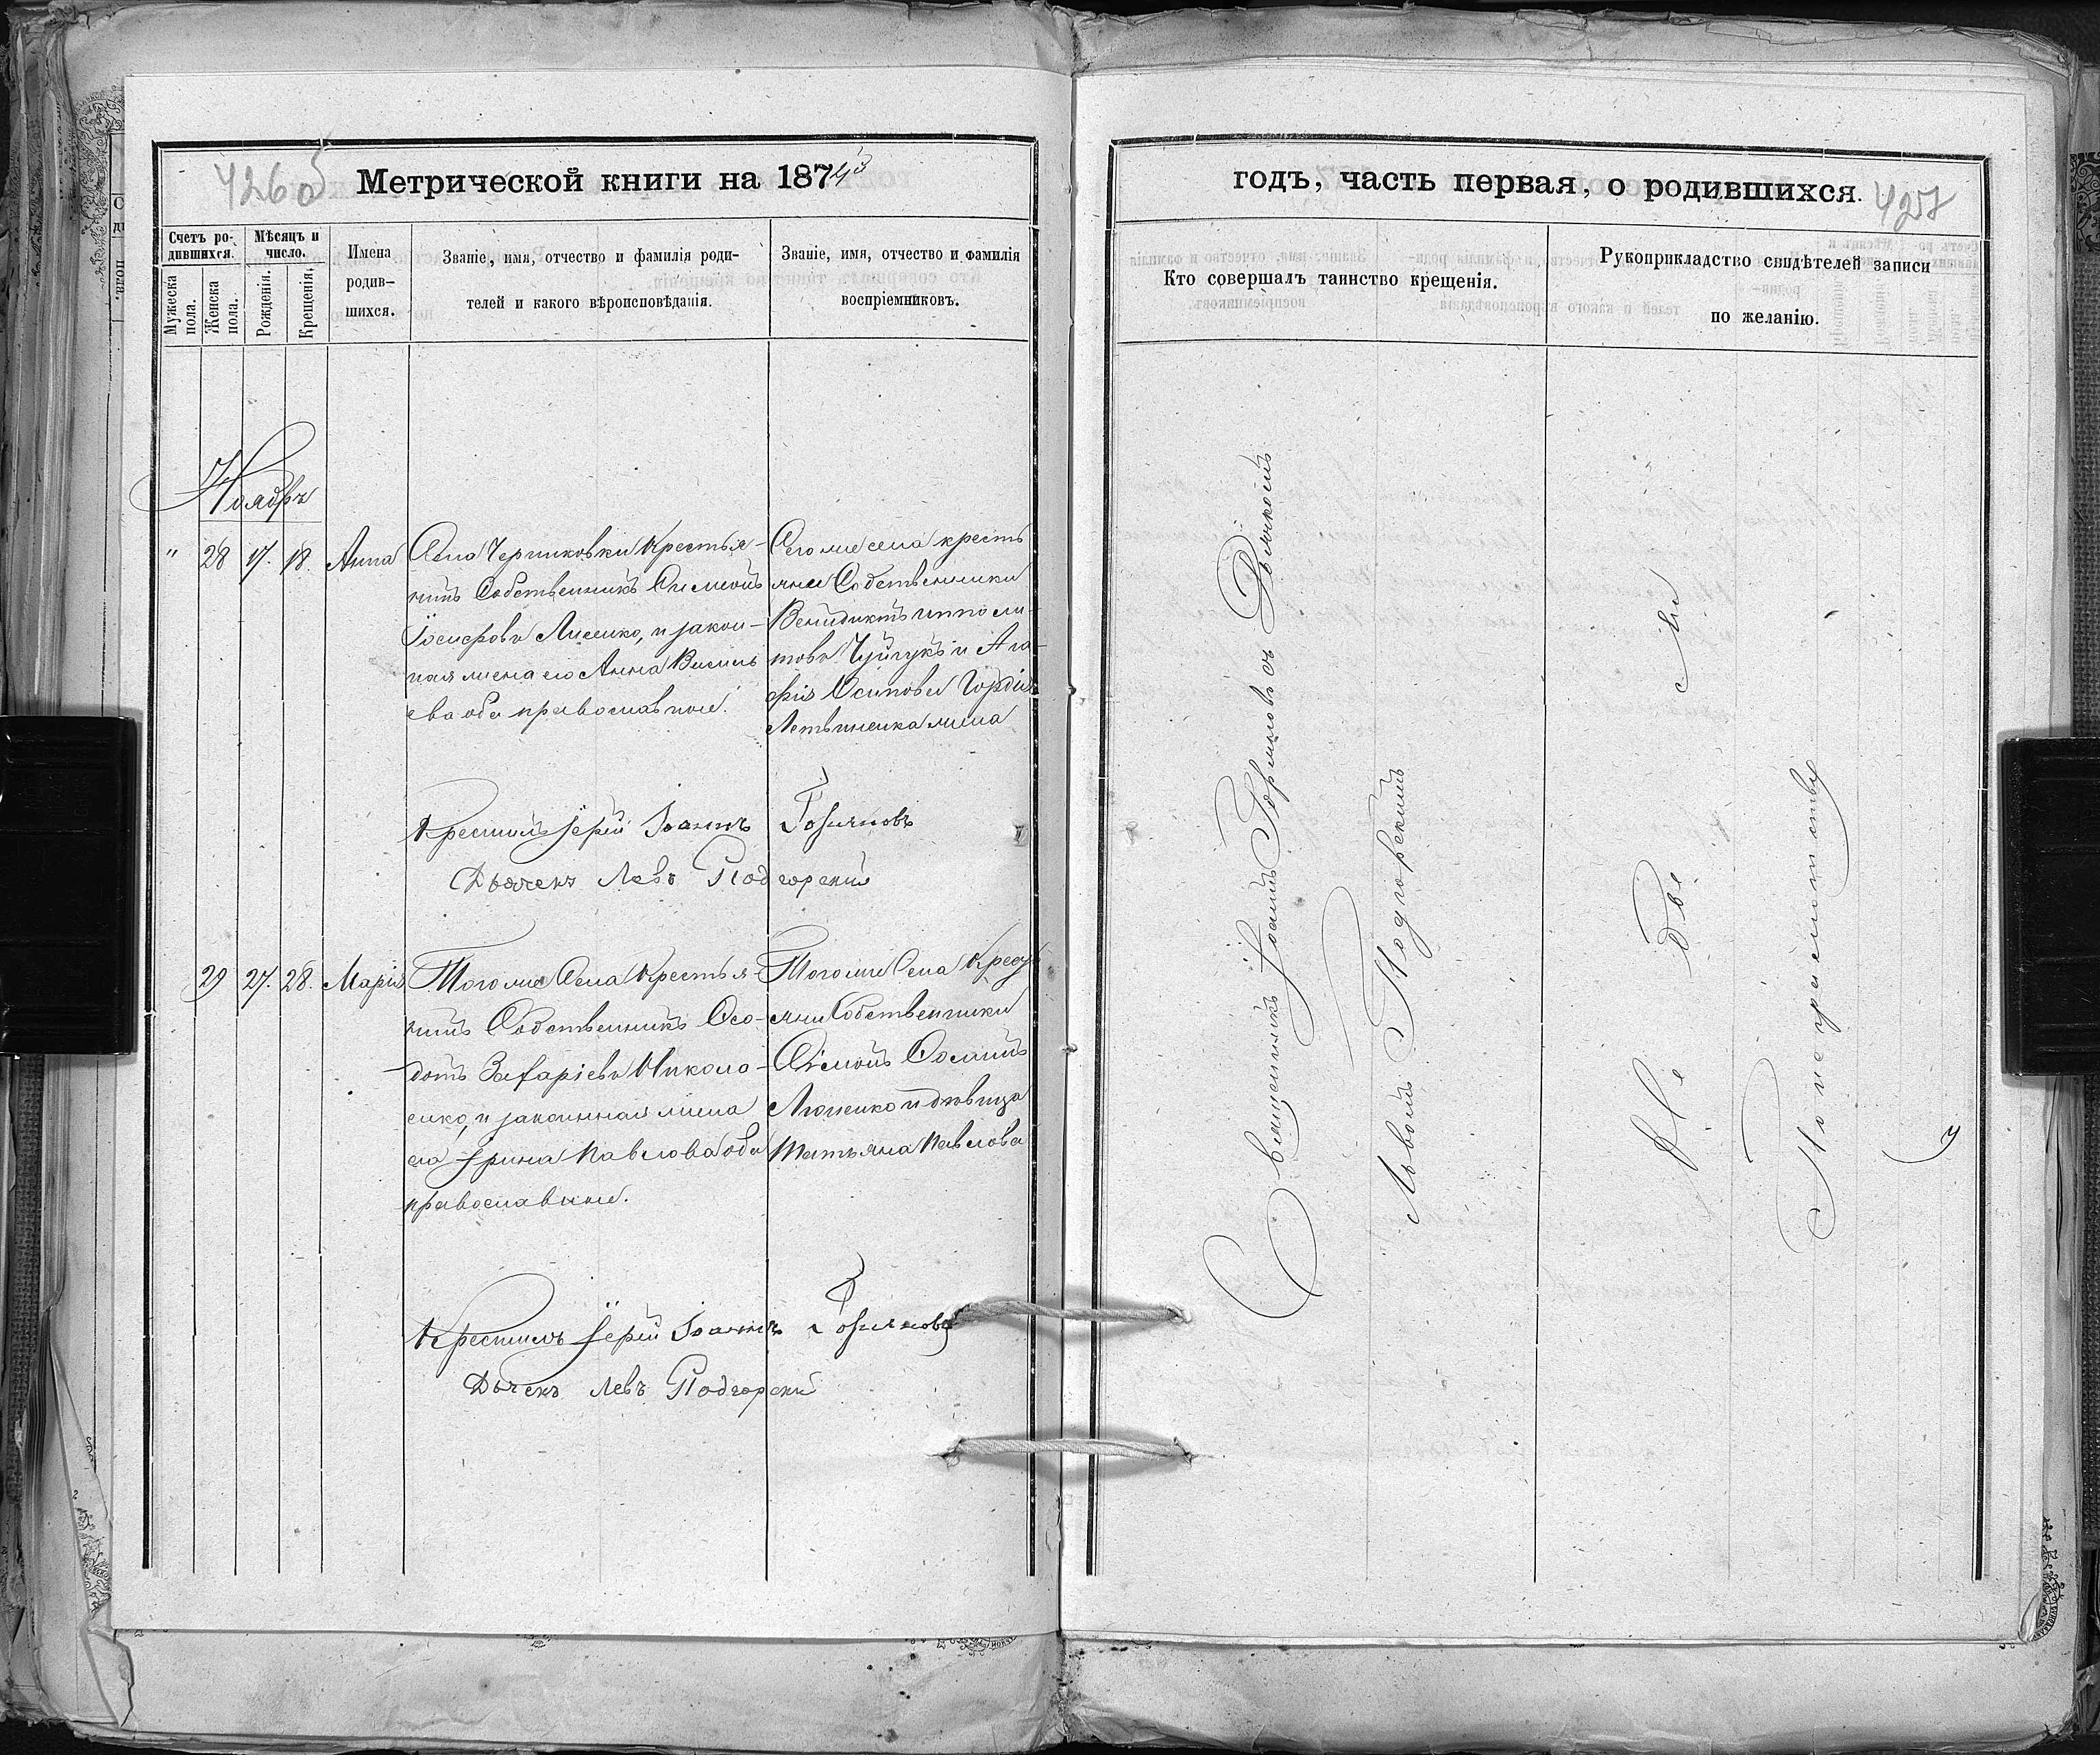 426 об
Метрической книги на 1874
Счетъ ро-
дившихся.
Мужеска
пола.
Женска
пола.
Мѣсяцъ и
число.
Рожденія.
Крещенія.
Имена
родив-
шихся.
Званіе, имя, отчество и фамилія роди-
телей и какого вѣроисповѣданія.
Званіе, имя, отчество и фамилія
воспріемниковъ.
Ноябрь
" 28 17. 18. Анна
Села Черпиковки Крестья-
нинъ Собственникъ Симеонъ
Іосифовъ Лисенко, и закон-
ная жена его Анна Василь
ева оба православные.
Того же села кресть
яне Собственники
Венидиктъ Ипполи-
товъ Чуйчукъ и Ага-
фія Осипова Гордія
Летвиненка жена
Крестилъ Іерей Іоаннъ Горяновъ
Дьячекъ Левъ Подгорскій
29 27. 28. Марія
Того же Села Крестья-
нинъ Собственникъ Ѳео-
дотъ Захаріевъ Никола-
енко, и законная жена
его Ірина Павлова оба
православные.
Того же Села Крес
яне Собственники
Симонъ
и дѣвица
Татьяна Павлова
Крестилъ Іерей Іоаннъ Горяновъ
Дьячекъ Левъ Подгорскій
годъ, часть первая, о родившихся.
427
Кто совершалъ таинство крещенія.
Рукоприкладство свидѣтелей записи
по желанію.
Священникъ Іоаннъ Горяновъ съ Дьячкомъ
Львомъ Подгорскимъ
По неграмотству